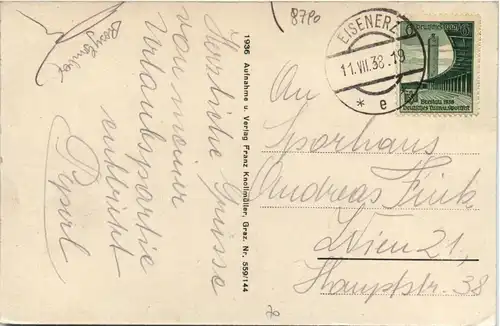 8790
Herzliche Grüsse
von meiner
Urlaubspartie
entbietet
Pepsirl
1936 Aufnahme u. Verlag Franz Knollmüller, Graz. Nr. 559/144
EISENERZ
11.VII.38.-19
* e
Deutsches Reich
Breslau 1938
Deutsches Turn- u. Sportfest
An
Sporhaus
Andreas Fink
Wien 21,
Hauptstr. 38